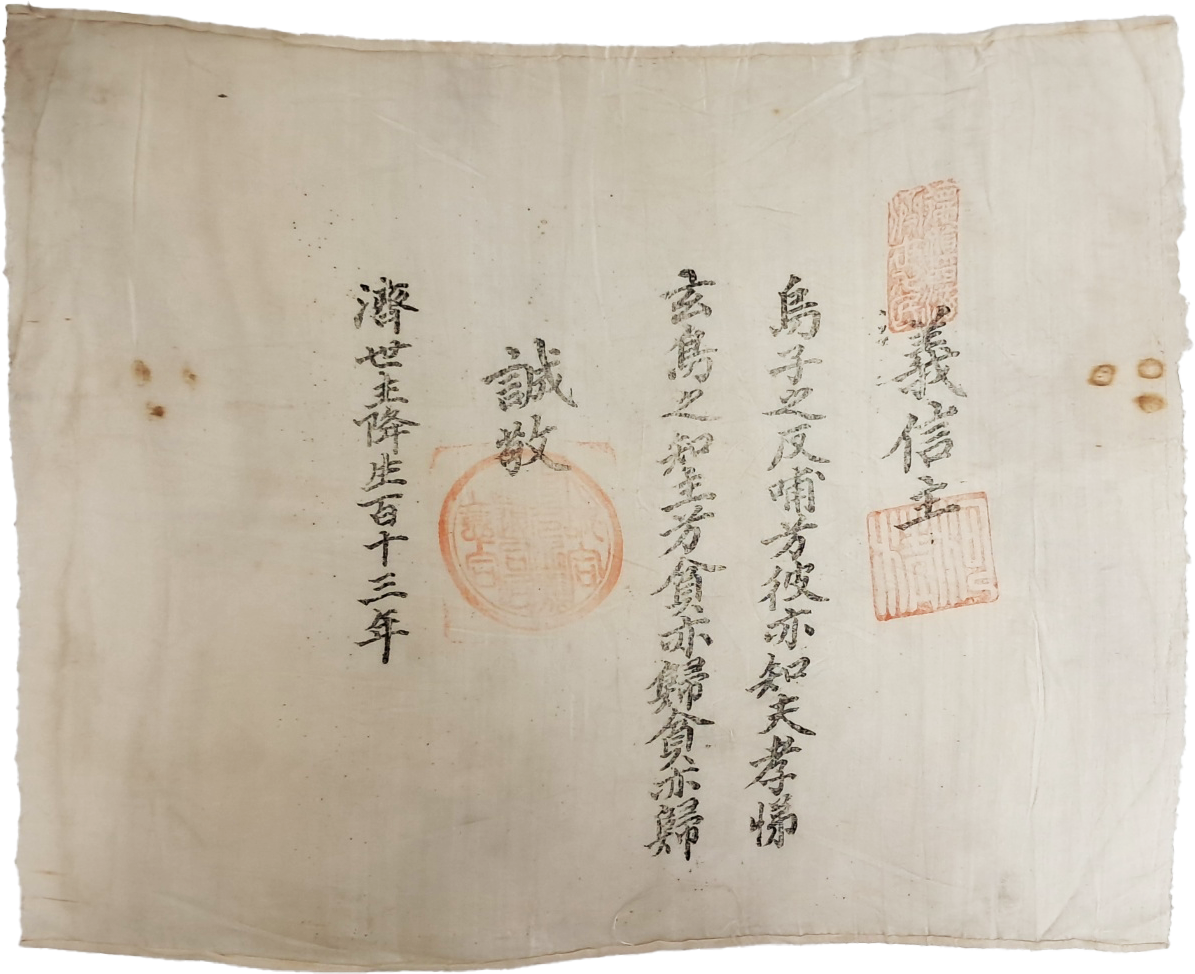 義信主
烏子之反哺芳彼亦知夫孝悌
玄鳥之知主芳貧亦歸貧亦歸
誠敬
濟世主降生百十三年